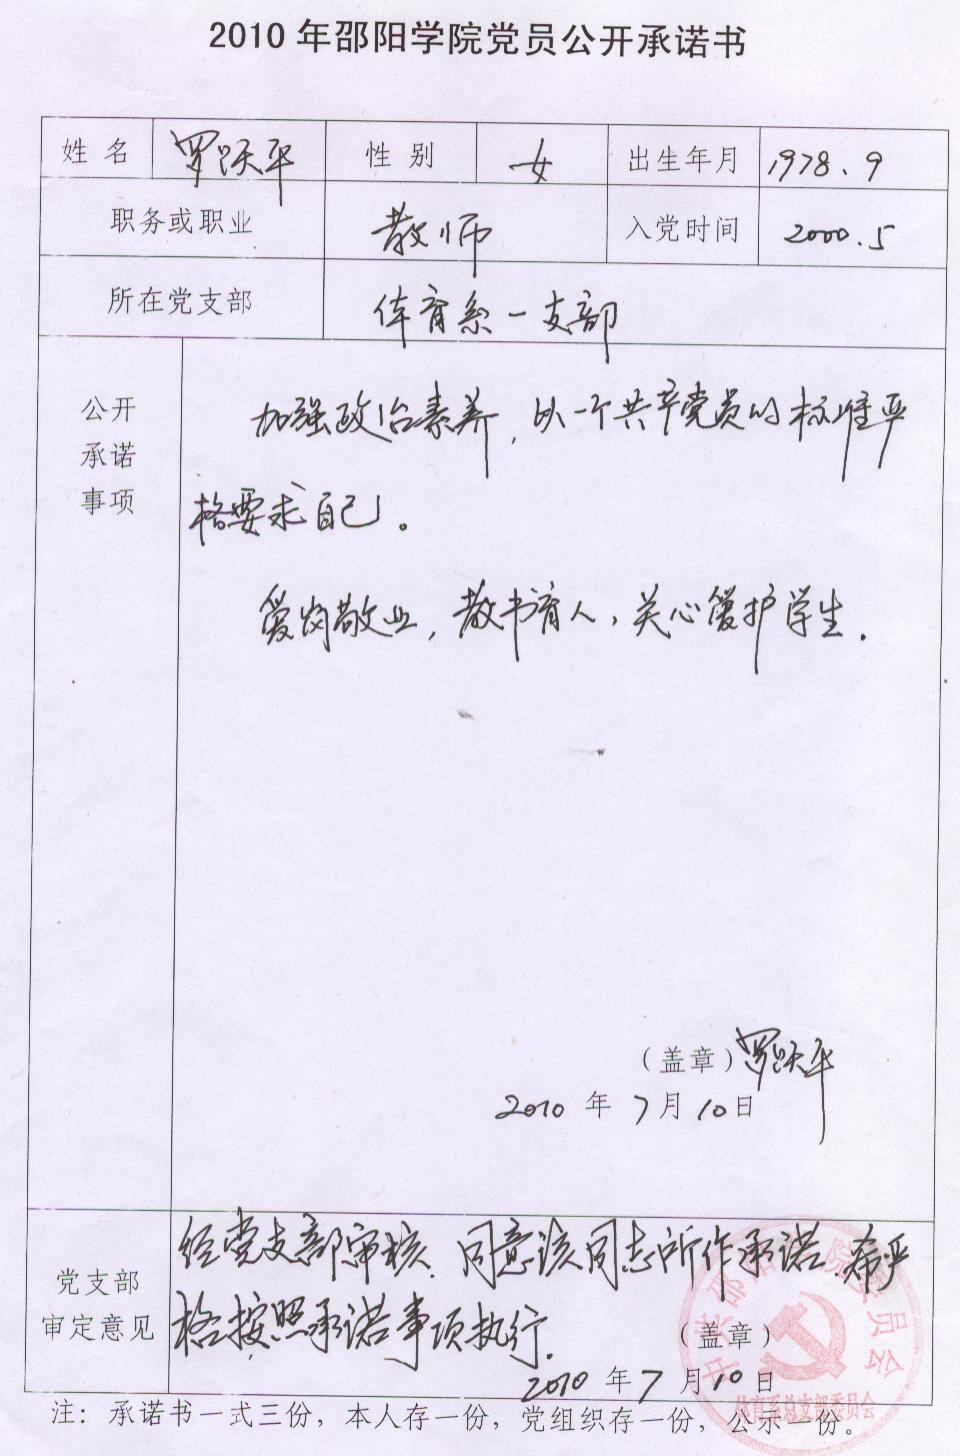 2010年邵阳学院党员公开承诺书
姓 名 罗跃平 性 别 女 出生年月 1978.9
职务或职业 教师 入党时间 2000.5
所在党支部 体育系一支部
公开
承诺
事项
加强政治素养,以一个共产党员的标准严
格要求自己。
爱岗敬业,教书育人,关心爱护学生.
(盖章)罗跃平
2010 年 7 月 10 日
党支部
审定意见
经党支部审核.同意该同志所作承诺.希严
格按照承诺事项执行.
(盖章)
2010 年 7 月 10 日
中共邵阳学院委员会
体育系总支部委员会
注:承诺书一式三份,本人存一份,党组织存一份,公示一份。